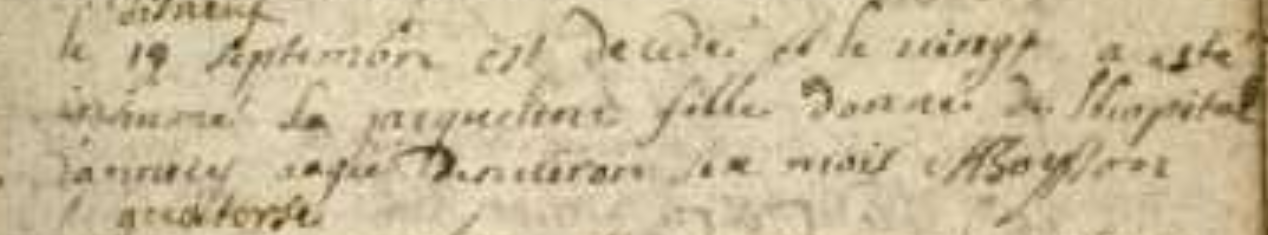 dixneuf
le 19 septembre est decedé et le vingt a esté
inhumé la jacqueline fille donné de l'hopital
d'annecy agée d'environ six mois
quatorse